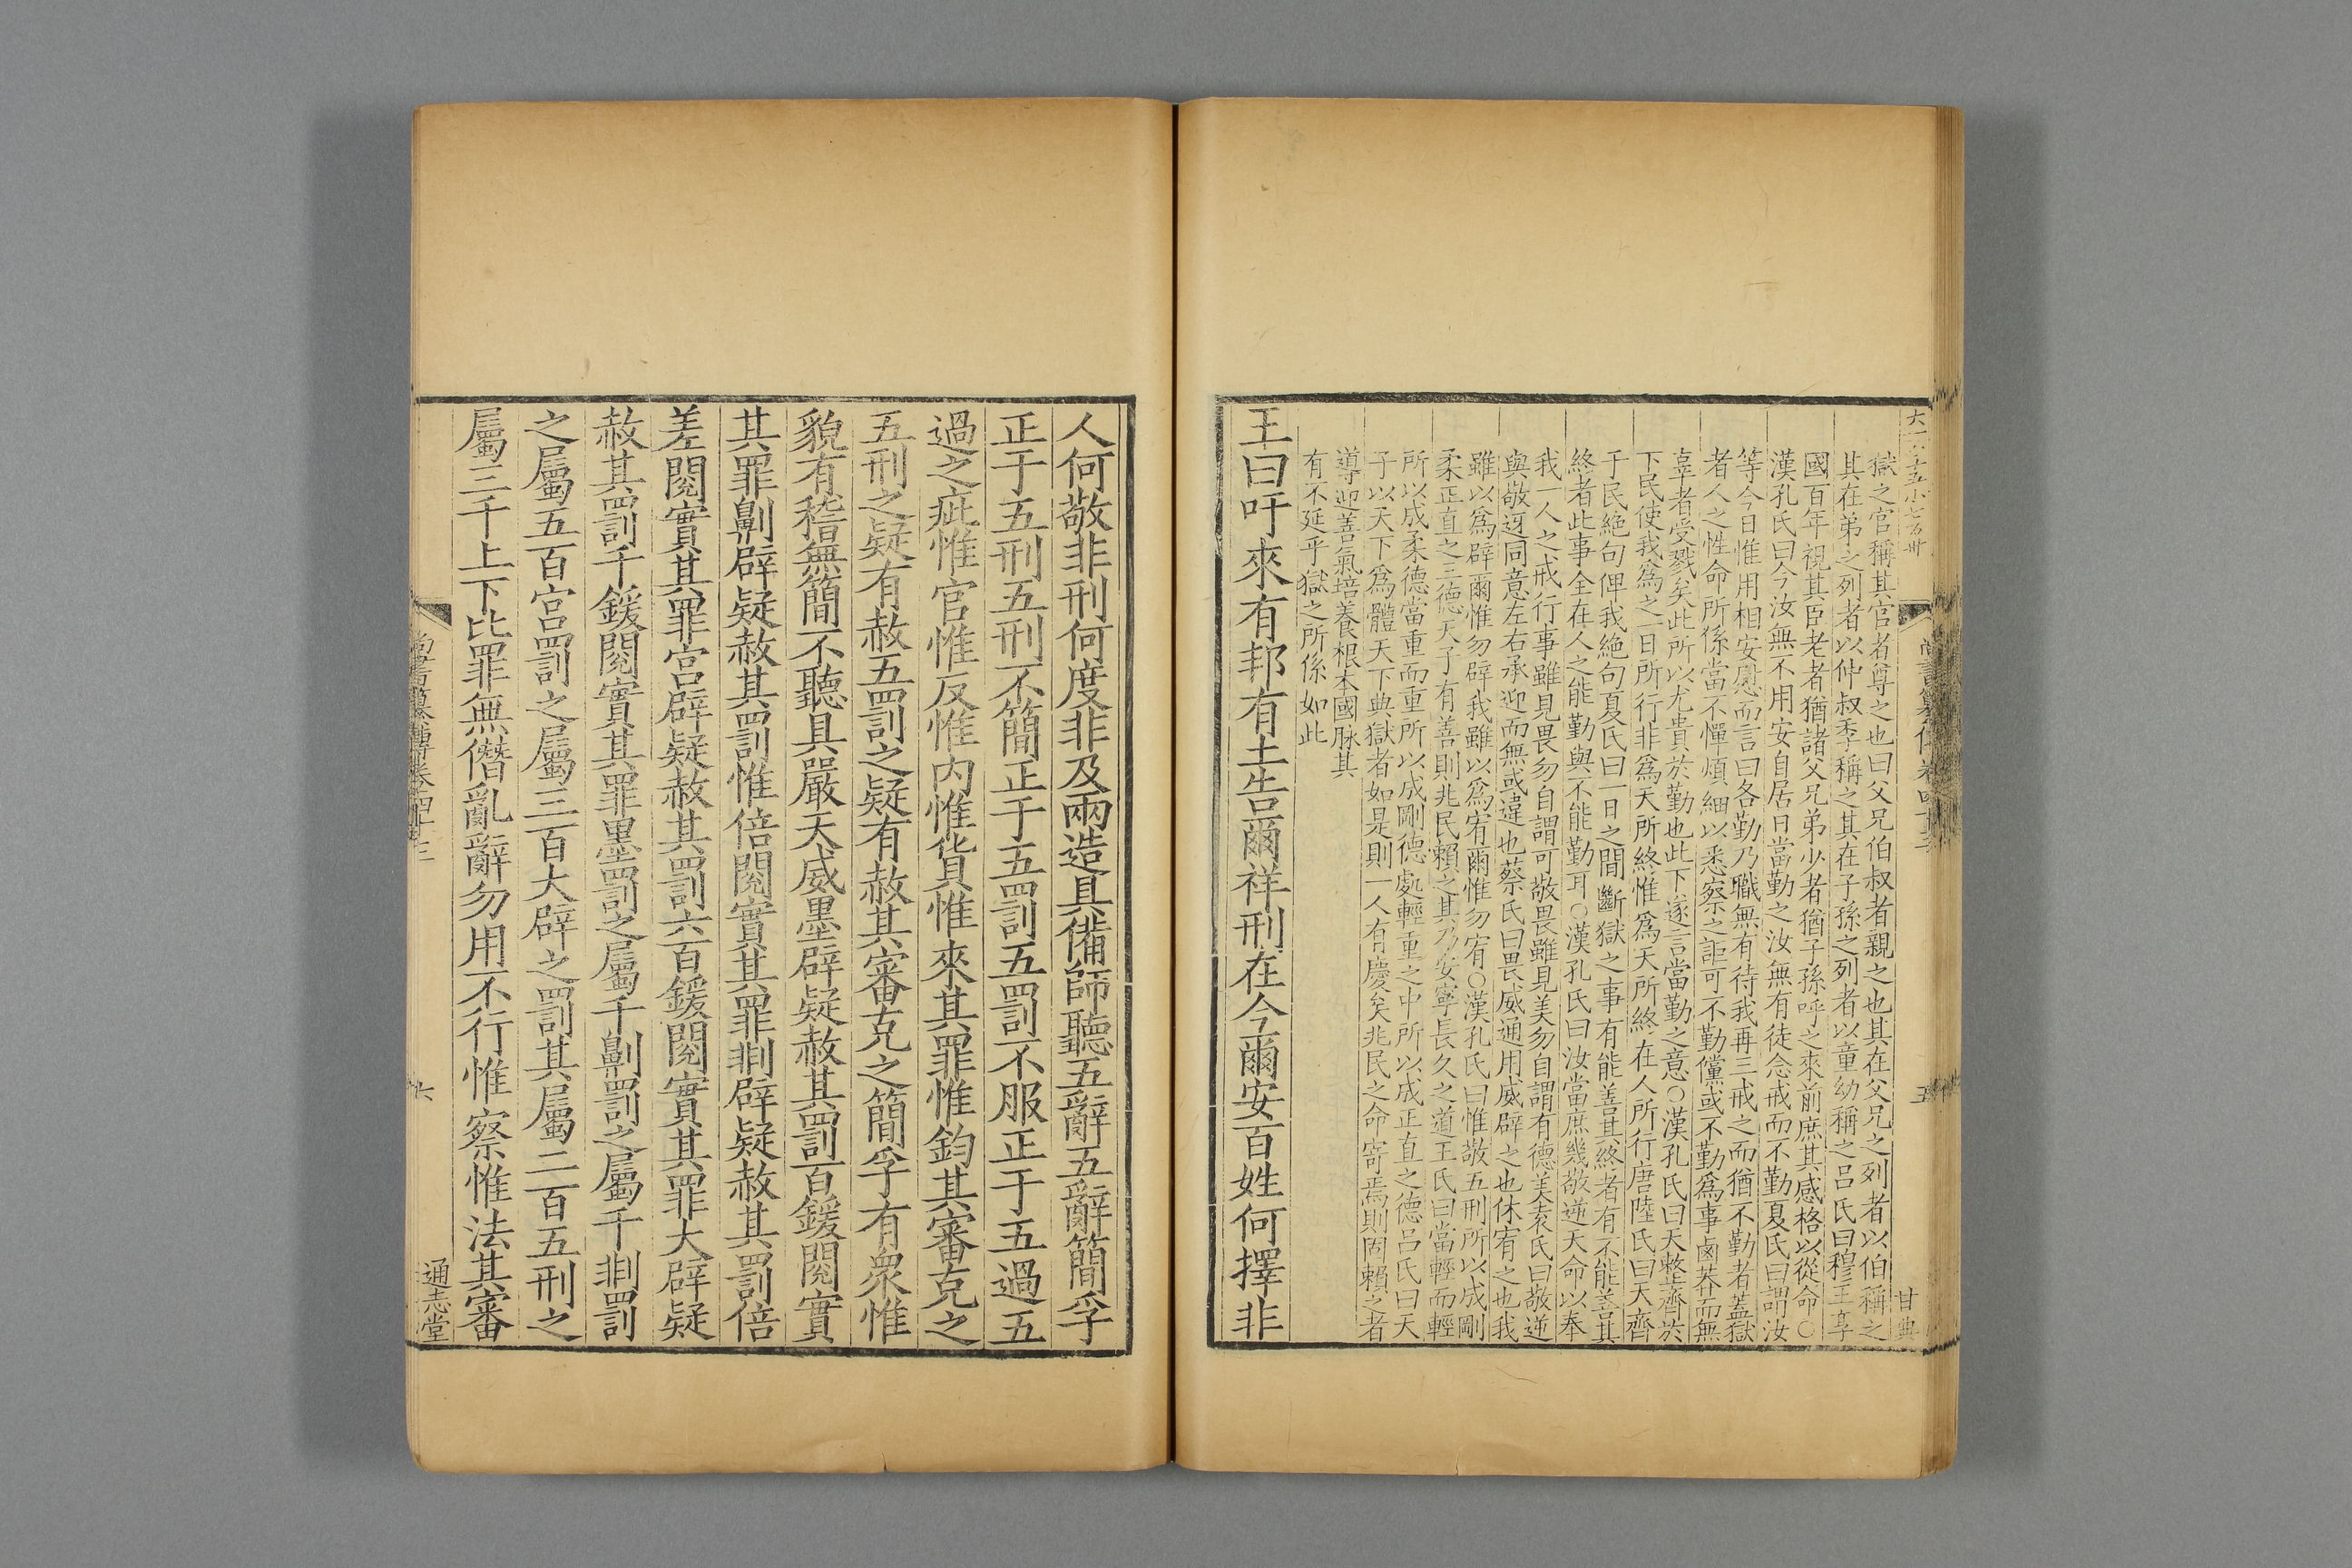 獄之官稱其官者尊之也曰父兄伯叔者親之也其在父兄之列者以伯稱之
其在弟之列者以仲叔季稱之其在子孫之列者以童幼稱之吕氏曰穆王享
國百年視其臣老者猶諸父兄弟少者猶子孫呼之來前庶其感格以從命○
漢孔氏曰今汝無不用安自居日當勤之汝無有徒念戒而不勤夏氏曰謂汝
等今日惟用相安慰而言曰各勤乃職無有待我再三戒之而猶不勤者蓋獄
者人之性命所係當不憚煩細以悉察之詎可不勤儻或不勤爲事鹵莽而無
辜者受戮矣此所以尤貴於勤也此下遂言當勤之意○漢孔氏曰天整齊於
下民使我爲之一日所行非爲天所終惟爲天所終在人所行唐陸氏曰天齊
于民絶句俾我絶句夏氏曰一日之間斷獄之事有能善其終者有不能善其
終者此事全在人之能勤與不能勤耳○漢孔氏曰汝當庶幾敬逆天命以奉
我一人之戒行事雖見畏勿自謂可敬畏雖見美勿自謂有德美袁氏曰敬逆
與敬迓同意左右承迎而無或違也蔡氏曰畏威通用威辟之也休宥之也我
雖以爲辟爾惟勿辟我雖以爲宥爾惟勿宥○漢孔氏曰惟敬五刑所以成剛
柔正直之三德天子有善則兆民賴之其乃安寧長久之道王氏曰當輕而輕
所以成柔德當重而重所以成剛德處輕重之中所以成正直之德吕氏曰天
子以天下爲體天下典獄者如是則一人有慶矣兆民之命寄焉則固賴之者
導迎善氣培養根本國脉其
有不延乎獄之所係如此
王曰吁來有邦有土告爾祥刑在今爾安百姓何擇非
五
甘典
人何敬非刑何度非及兩造具備師聽五辭五辭簡孚
正于五刑五刑不簡正于五罰五罰不服正于五過五
過之疵惟官惟反惟内惟貨惟來其罪惟鈞其審克之
五刑之疑有赦五罰之疑有赦其審克之簡孚有衆惟
貌有稽無簡不聽具嚴天威墨辟疑赦其罰百鍰閱實
其罪劓辟疑赦其罰惟倍閱實其罪剕辟疑赦其罰倍
差閱實其罪宫辟疑赦其罰六百鍰閱實其罪大辟疑
赦其罰千鍰閱實其罪墨罰之屬千劓罰之屬千剕罰
之屬五百宫罰之屬三百大辟之罰其屬二百五刑之
屬三千上下比罪無僭亂辭勿用不行惟察惟法其審
六
通志堂